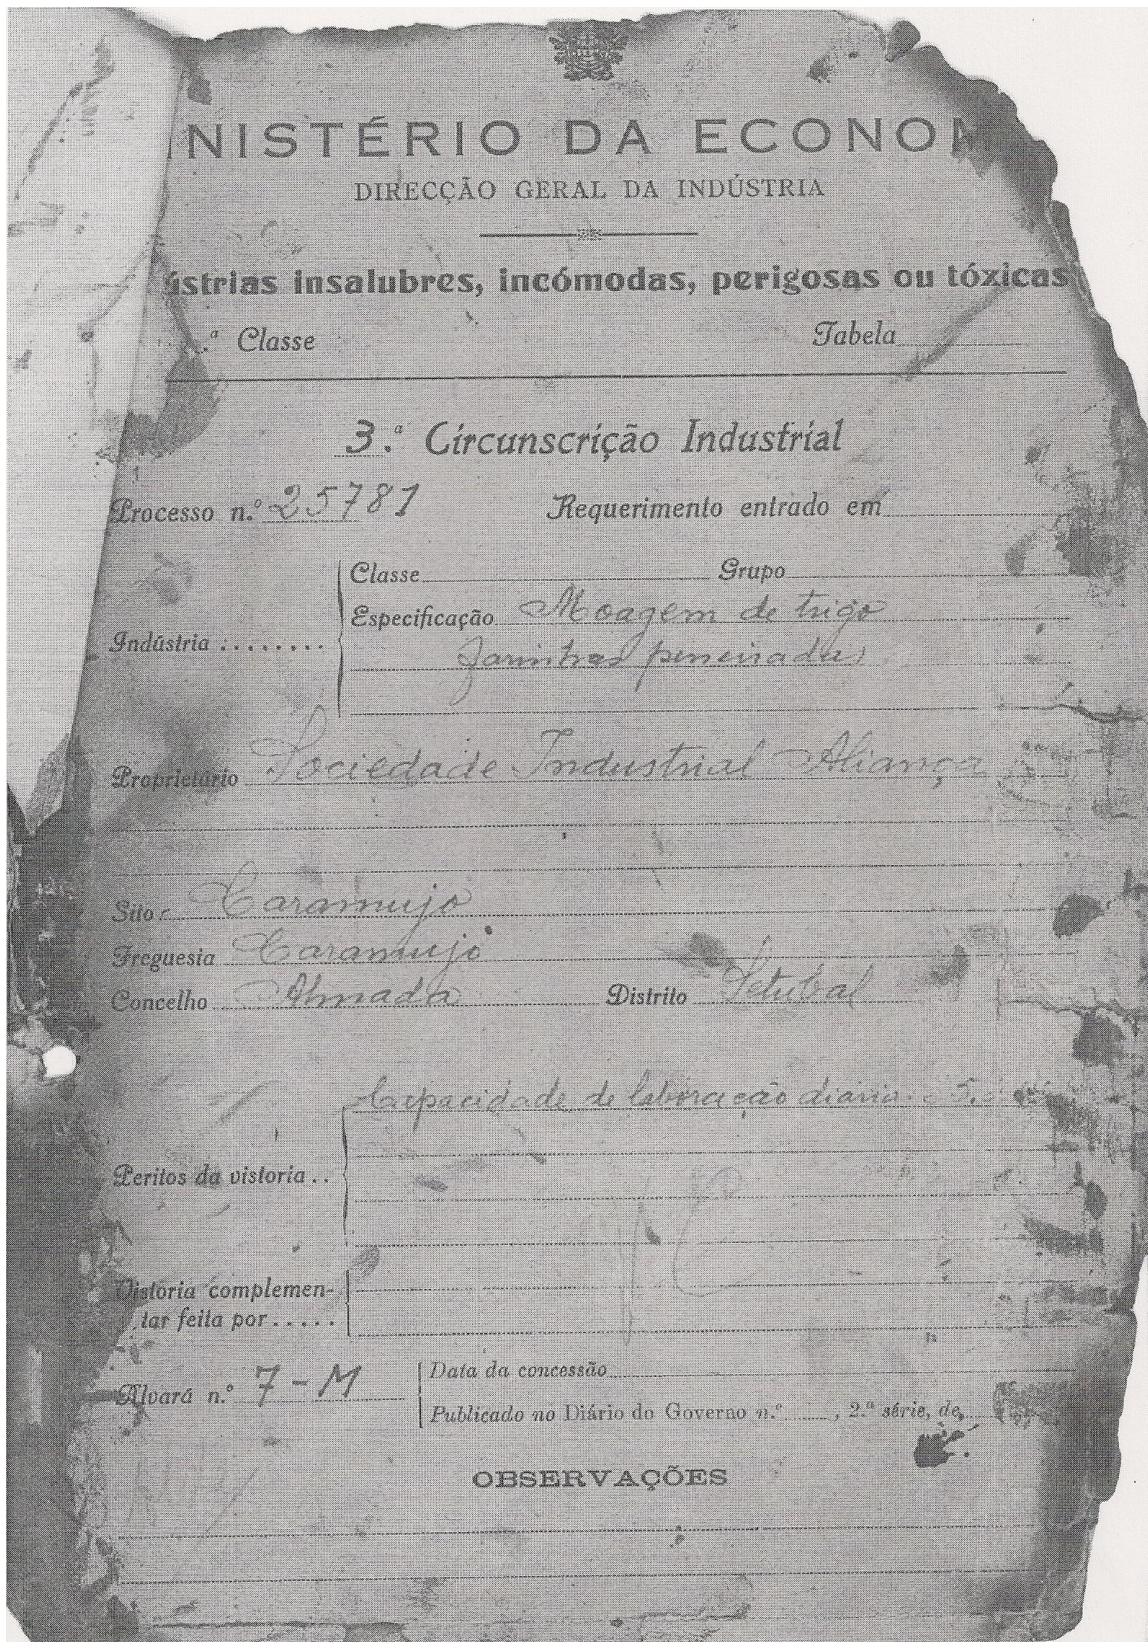 NISTÉRIO DA ECONOM
DIRECÇÃO GERAL DA INDÚSTRIA
ústrias insalubres, incómodas, perigosas ou tóxicas
.ª Classe Tabela
3.ª Circunscrição Industrial
Processo n.º 25781 Requerimento entrado em
Classe Grupo
Especificação Moagem de trigo
Indústria :........
farinhas peneiradas
Proprietário Sociedade Industrial Aliança
Sito Caramujo
Freguesia Caramujo
Concelho Almada Distrito Setubal
Capacidade de laboração diaria
Peritos da vistoria ..
Vistoria complemen-
tar feita por .....
Data da concessão
Alvará n.º 7-M
Publicado no Diário do Governo n.º , 2.ª série, de
OBSERVAÇÕES